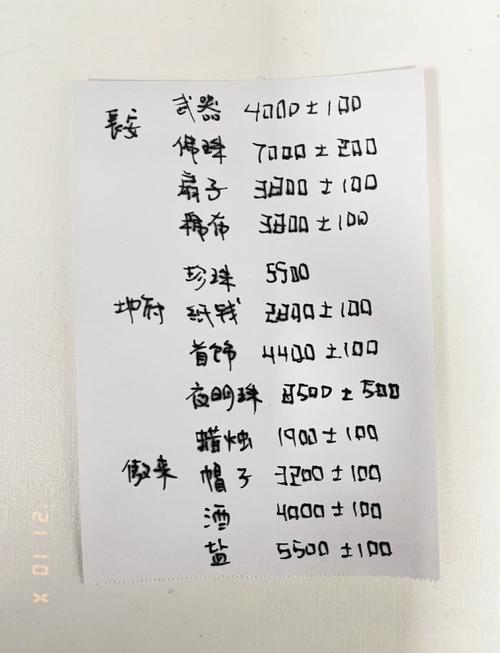 長安 武器 4000±100
佛珠 7000±200
扇子 3800±100
棉布 3800±100
珍珠 5900
地府 纸钱 2800±100
首饰 4400±100
夜明珠 8500±500
蜡烛 1900±100
傲来 帽子 3200±100
酒 4000±100
盐 5500±100
X 01 12